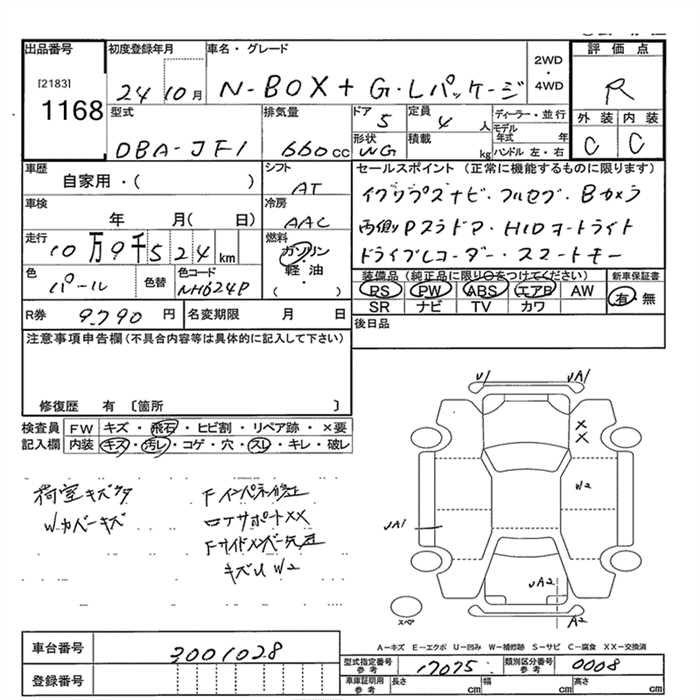 出品番号 初度登録年月 車名・グレード 2WD・4WD 評価点
[2183] 1168 24 10月 N-BOX+ G・Lパッケージ R
型式 排気量 ドア 定員 ディーラー・並行 外装 内装
DBA-JF1 660cc 5 4人 モデル年式 年 C C
形状 WG 積載 kg ハンドル 左・右
車歴 シフト セールスポイント (正常に機能するものに限ります)
自家用・( ) AT ナビ・フルセグ・Bカメラ
車検 冷房 両側Pスラドア・HIDヨートライト
年 月( 日) AAC ドライブレコーダー・スマートキー
走行 10万9千524km 燃料 ガソリン・軽油・( )
色 パール 色替 色コード NH624P
装備品 (純正品に限り○をつけてください) 新車保証書
PS PW ABS エアB AW 有・無
SR ナビ TV カワ
R券 9790円 名変期限 月 日 後日品
注意事項申告欄 (不具合内容等は具体的に記入して下さい)
修復歴 有 〔箇所 〕
検査員 FW キズ・飛石・ヒビ割・リペア跡・×要
記入欄 内装 キズ・汚レ・コゲ・穴・スレ・キレ・破レ
荷室キズ Fインパネ修正
Wカバーキズ コアサポートXX
Fサイドメンバー
キズU W2
U1 JA1
X
X
W2
JA1
JA2
A2
スペア
A−キズ E−エクボ U−凹み W−補修跡 S−サビ C−腐食 XX−交換済
車台番号 3001028
型式指定番号 参考 17075 類別区分番号 参考 0008
登録番号 車庫証明用 参考 長さ cm 幅 cm 高さ cm